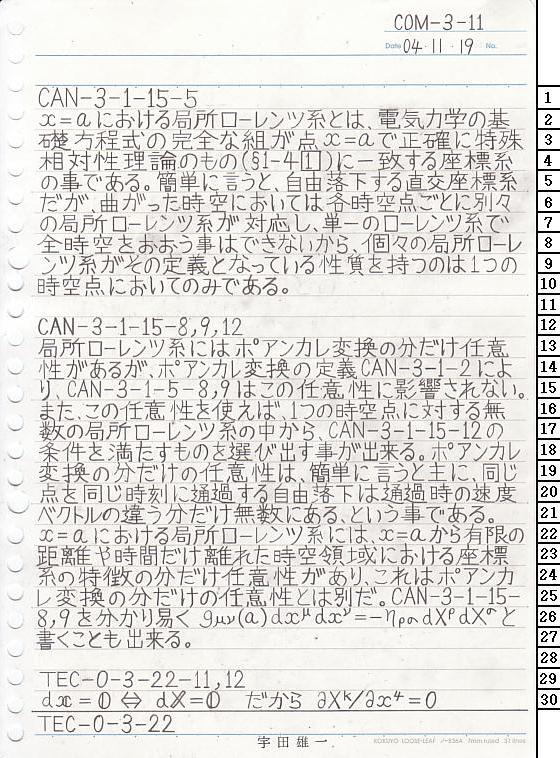 COM-3-11
Date 04・11・19 No.
CAN-3-1-15-5
x=aにおける局所ローレンツ系とは、電気力学の基
礎方程式の完全な組が点x=aで正確に特殊
相対性理論のもの(§1-4[1])に一致する座標系
の事である。簡単に言うと、自由落下する直交座標系
だが、曲がった時空においては各時空点ごとに別々
の局所ローレンツ系が対応し、単一のローレンツ系で
全時空をおおう事はできないから、個々の局所ローレ
ンツ系がその定義となっている性質を持つのは1つの
時空点においてのみである。
CAN-3-1-15-8,9,12
局所ローレンツ系にはポアンカレ変換の分だけ任意
性があるが、ポアンカレ変換の定義CAN-3-1-2によ
り、CAN-3-1-5-8,9はこの任意性に影響されない。
また、この任意性を使えば、1つの時空点に対する無
数の局所ローレンツ系の中から、CAN-3-1-15-12の
条件を満たすものを選び出す事が出来る。ポアンカレ
変換の分だけの任意性は、簡単に言うと主に、同じ
点を同じ時刻に通過する自由落下は通過時の速度
ベクトルの違う分だけ無数にある、という事である。
x=aにおける局所ローレンツ系には、x=aから有限の
距離や時間だけ離れた時空領域における座標
系の特徴の分だけ任意性があり、これはポアンカ
レ変換の分だけの任意性とは別だ。CAN-3-1-15-
8,9を分かり易く gμν(a)dxμdxν=-ηρσdXρdXσと
書くことも出来る。
TEC-0-3-22-11,12
dx=0 ⇔ dX=0 だから ∂Xᵏ/∂x⁴=0
TEC-0-3-22
宇田雄一
KOKUYO LOOSE-LEAF ノ-836A 7mm ruled 31 lines
1
2
3
4
5
6
7
8
9
10
11
12
13
14
15
16
17
18
19
20
21
22
23
24
25
26
27
28
29
30